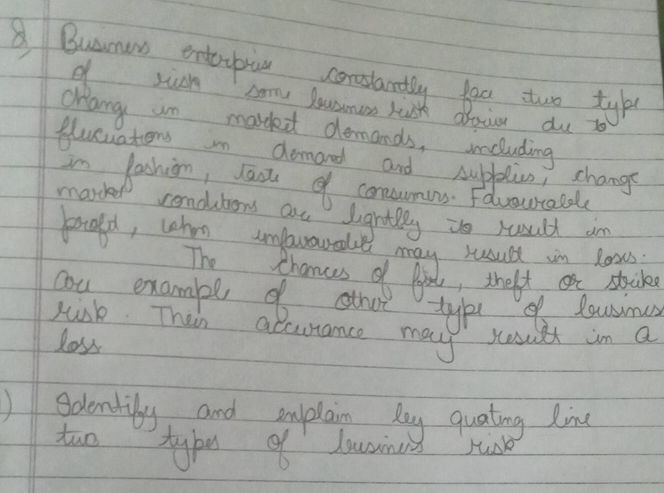 8) Business enterprise constantly face two type
of risk some business risk arises due to
change in market demands, including
flucuations in demand and supplies, change
in fashion, taste of consumers. Favourable
market conditions are lightly to result in
profit, when unfavourable may result in loss.
The chances of fire, theft or strike
are example of other type of business
risk. Their accurance may result in a
loss
) Identify and explain by quating line
two types of business risk